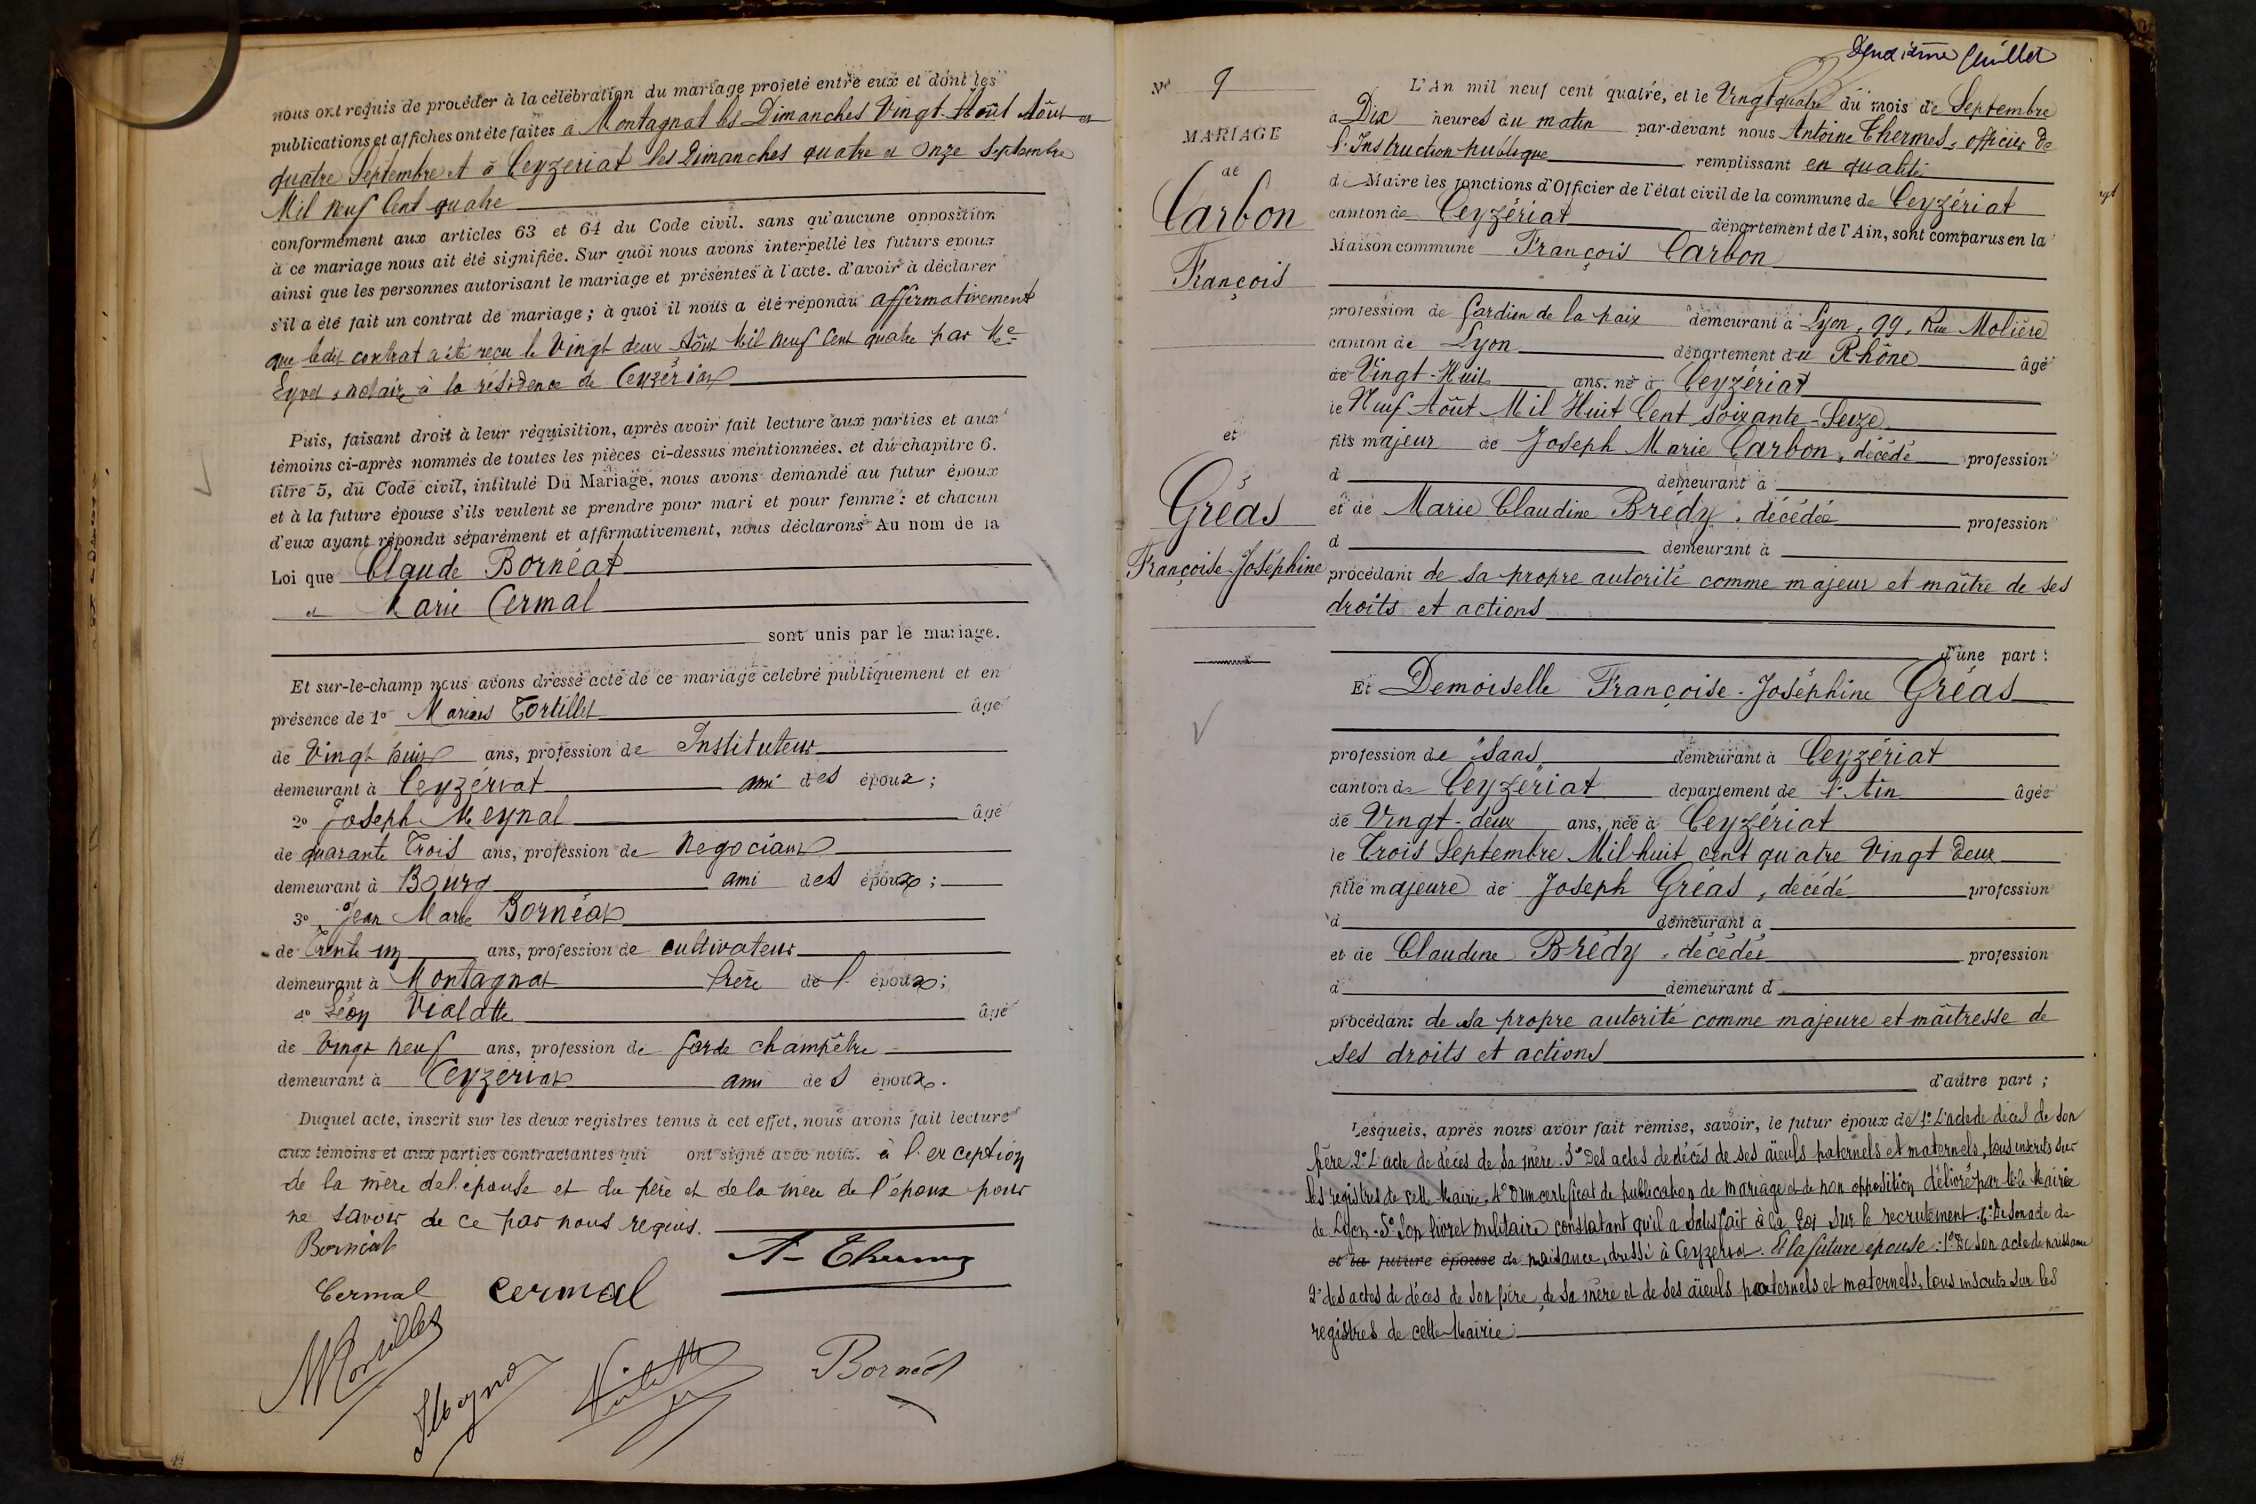 nous ont requis de procéder à la célébration du mariage projeté entre eux et dont les
publications et affiches ont été faites à Montagnat les Dimanches Vingt-Huit Août et
quatre Septembre et à Ceyzériat les Dimanches quatre et Onze Septembre
Mil neuf Cent quatre
conformément aux articles 63 et 64 du Code civil. sans qu'aucune opposition
à ce mariage nous ait été signifiée. Sur quoi nous avons interpellé les futurs époux
ainsi que les personnes autorisant le mariage et présentes à l'acte. d'avoir à déclarer
s'il a été fait un contrat de mariage ; à quoi il nous a été répondu affirmativement
que ledit contrat a été reçu le Vingt deux Août Mil neuf Cent quatre par Me
Eyvet, notaire à la résidence de Ceyzériat
Puis, faisant droit à leur réquisition, après avoir fait lecture aux parties et aux
témoins ci-après nommés de toutes les pièces ci-dessus mentionnées. et du chapitre 6.
titre 5, du Code civil, intitulé Du Mariage, nous avons demandé au futur époux
et à la future épouse s'ils veulent se prendre pour mari et pour femme : et chacun
d'eux ayant répondu séparément et affirmativement, nous déclarons Au nom de la
Loi que Claude Bornéat
et Marie Cermal
sont unis par le mariage.
Et sur-le-champ nous avons dressé acte de ce mariage célébré publiquement et en
présence de 1° Marius Tortillet âgé
de Vingt huit ans, profession de Instituteur
demeurant à Ceyzériat ami des époux ;
2° Joseph Meynal âgé
de quarante Trois ans, profession de Négociant
demeurant à Bourg ami des époux ;
3° Jean Marie Bornéat
de Trente un ans, profession de cultivateur
demeurant à Montagnat frère de l' époux ;
4° Léon Vialatte âgé
de Vingt neuf ans, profession de garde champêtre
demeurant à Ceyzériat ami des époux.
Duquel acte, inscrit sur les deux registres tenus à cet effet, nous avons fait lecture
aux témoins et aux parties contractantes qui ont signé avec nous. à l'exception
de la mère de l'épouse et du père et de la mère de l'époux pour
ne savoir de ce par nous requis.
Bornéat
A- Thermes
Cermal cermal
MTortillet
JMeynal
Vialatte
Bornéat
Deuxième feuillet
N° 9
MARIAGE
de
Carbon
François
et
Gréas
Françoise-Joséphine
L'An mil neuf cent quatre, et le Vingt quatre du mois de Septembre
à Dix heures du matin par-devant nous Antoine Thermes, officier de
l'Instruction publique remplissant en qualité
de Maire les fonctions d'Officier de l'état civil de la commune de Ceyzériat
canton de Ceyzériat département de l'Ain, sont comparus en la
Maison commune François Carbon
profession de Gardien de la paix demeurant à Lyon, 99, Rue Molière
canton de Lyon département du Rhône âgé
de Vingt-Huit ans. né à Ceyzériat
le Neuf Août Mil Huit Cent soixante-Seize
fils majeur de Joseph Marie Carbon, décédé profession
d demeurant à
et de Marie Claudine Brédy, décédée profession
d demeurant à
procédant de sa propre autorité comme majeur et maître de ses
droits et actions
d'une part :
Et Demoiselle Françoise-Joséphine Gréas
profession de "sans" demeurant à Ceyzériat
canton de Ceyzériat département de l'Ain âgée
de Vingt-deux ans, née à Ceyzériat
le Trois Septembre Mil huit cent quatre Vingt deux
fille majeure de Joseph Gréas, décédé profession
d demeurant à
et de Claudine Brédy, décédée profession
d demeurant à
procédant de sa propre autorité comme majeure et maîtresse de
ses droits et actions
d'autre part ;
Lesquels, après nous avoir fait remise, savoir, le futur époux de 1° L'acte de décès de son
père 2° L'acte de décès de sa mère. 3° Des actes de décès de ses aïeuls paternels et maternels, tous inscrits sur
les registres de cette Mairie. 4° D'un certificat de publication de mariage et de non opposition délivré par la Mairie
de Lyon. 5° Son livret militaire constatant qu'il a satisfait à la Loi sur le recrutement. 6° De son acte de
et la future épouse de naissance, dressé à Ceyzériat. Et la future épouse : 1° De son acte de naissance
2° des actes de décès de son père, de sa mère et de ses aïeuls paternels et maternels, tous inscrits sur les
registres de cette Mairie.